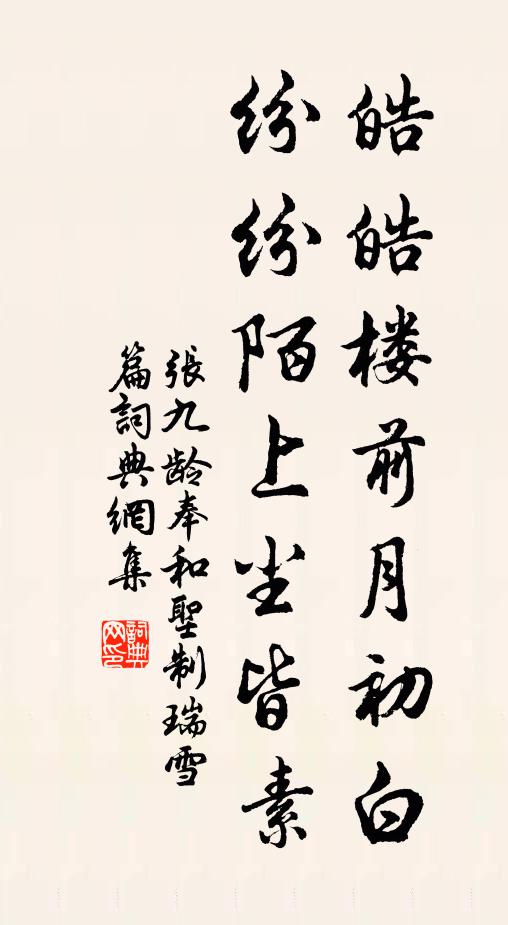 皓皓楼前月初白
纷纷陌上尘皆素
張九龄奉和聖制瑞雪
篇詞典網集
詞典网印